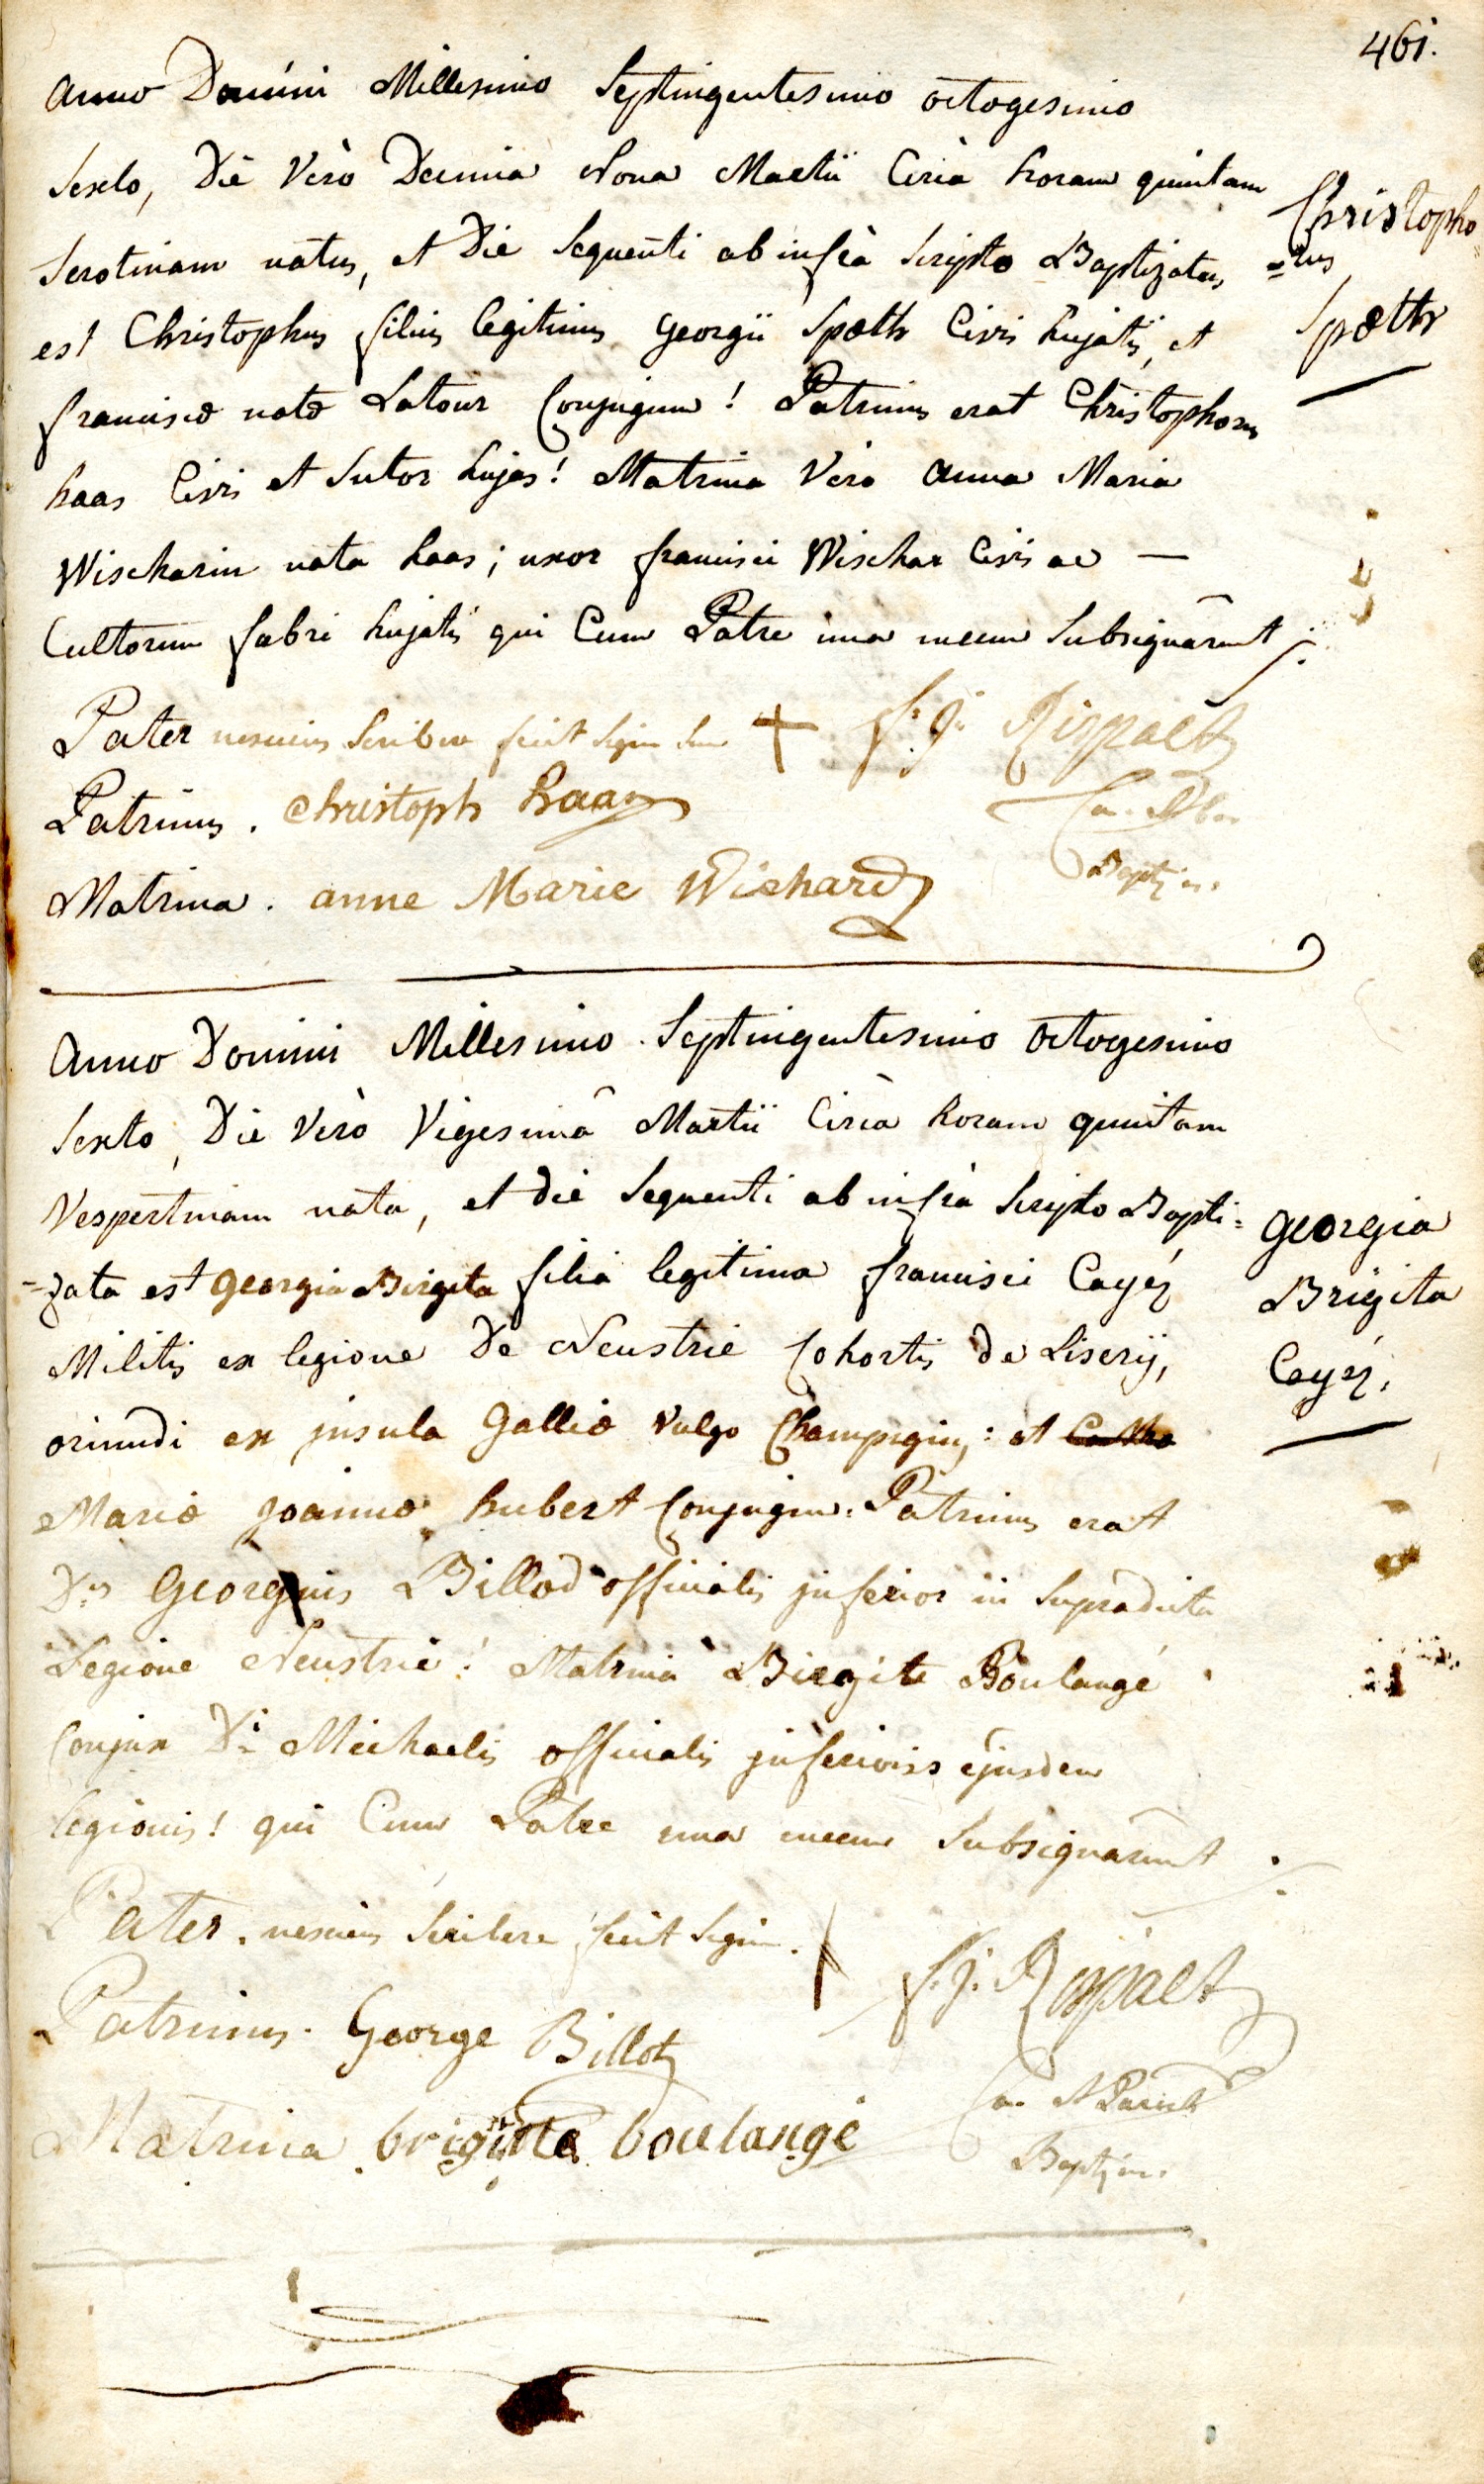 461.
Anno Domini Millesimo Septingentesimo octogesimo
Sexto, Die Vero Decima Nona Martii Circa horam quintam
Serotinam natus, et Die Sequenti ab infra Scripto Baptizatus
est Christophus filius legitimus Georgii Spæth Civis hujatis, et
franciscæ natæ Latour Conjugum! Patrinus erat Christophorus
haas Civis et Sutor hujas! Matrina Vero Anna Maria
Wischarin nata haas; uxor francisci Wischar Civis ac —
Cultorum fabri hujatis qui Cum Patre una mecum Subsignarunt
Christopho
=rus
Spæth
Pater nesciens Scribere fecit Signum Suum + f. j. Rispalt
Patrinus. Christoph haas
Matrina. anne Marie Wichard
Baptizans.
Anno Domini Millesimo Septingentesimo Octogesimo
Sexto, Die Vero Vigesimâ Martii Circa horam quintam
Vespertinam nata, et die Sequenti ab infra Scripto Bapti=
=zata est Georgia Birgita filia legitima francisci Cayéz
Militis ex legione De Neustrie Cohortis de Liserÿ,
oriundi ex insula Galliæ vulgo Champigny: et
Mariæ Joannæ hubert Conjugum: Patrinus erat
Dns Georgius Billod officialis inferior in Supradicta
Legione Neustrie! Matrina Birgite Boulangé
Conjux Di Michaelis officialis inferioris ejusdem
legionis! qui Cum Patre una mecum Subsignarunt
Georgia
Brigita
Cayéz.
Pater. nesciens Scribere fecit Signum. + f. j. Rispalt
Patrinus. George Billot
Matrina brigitte boulangé
Baptizans.